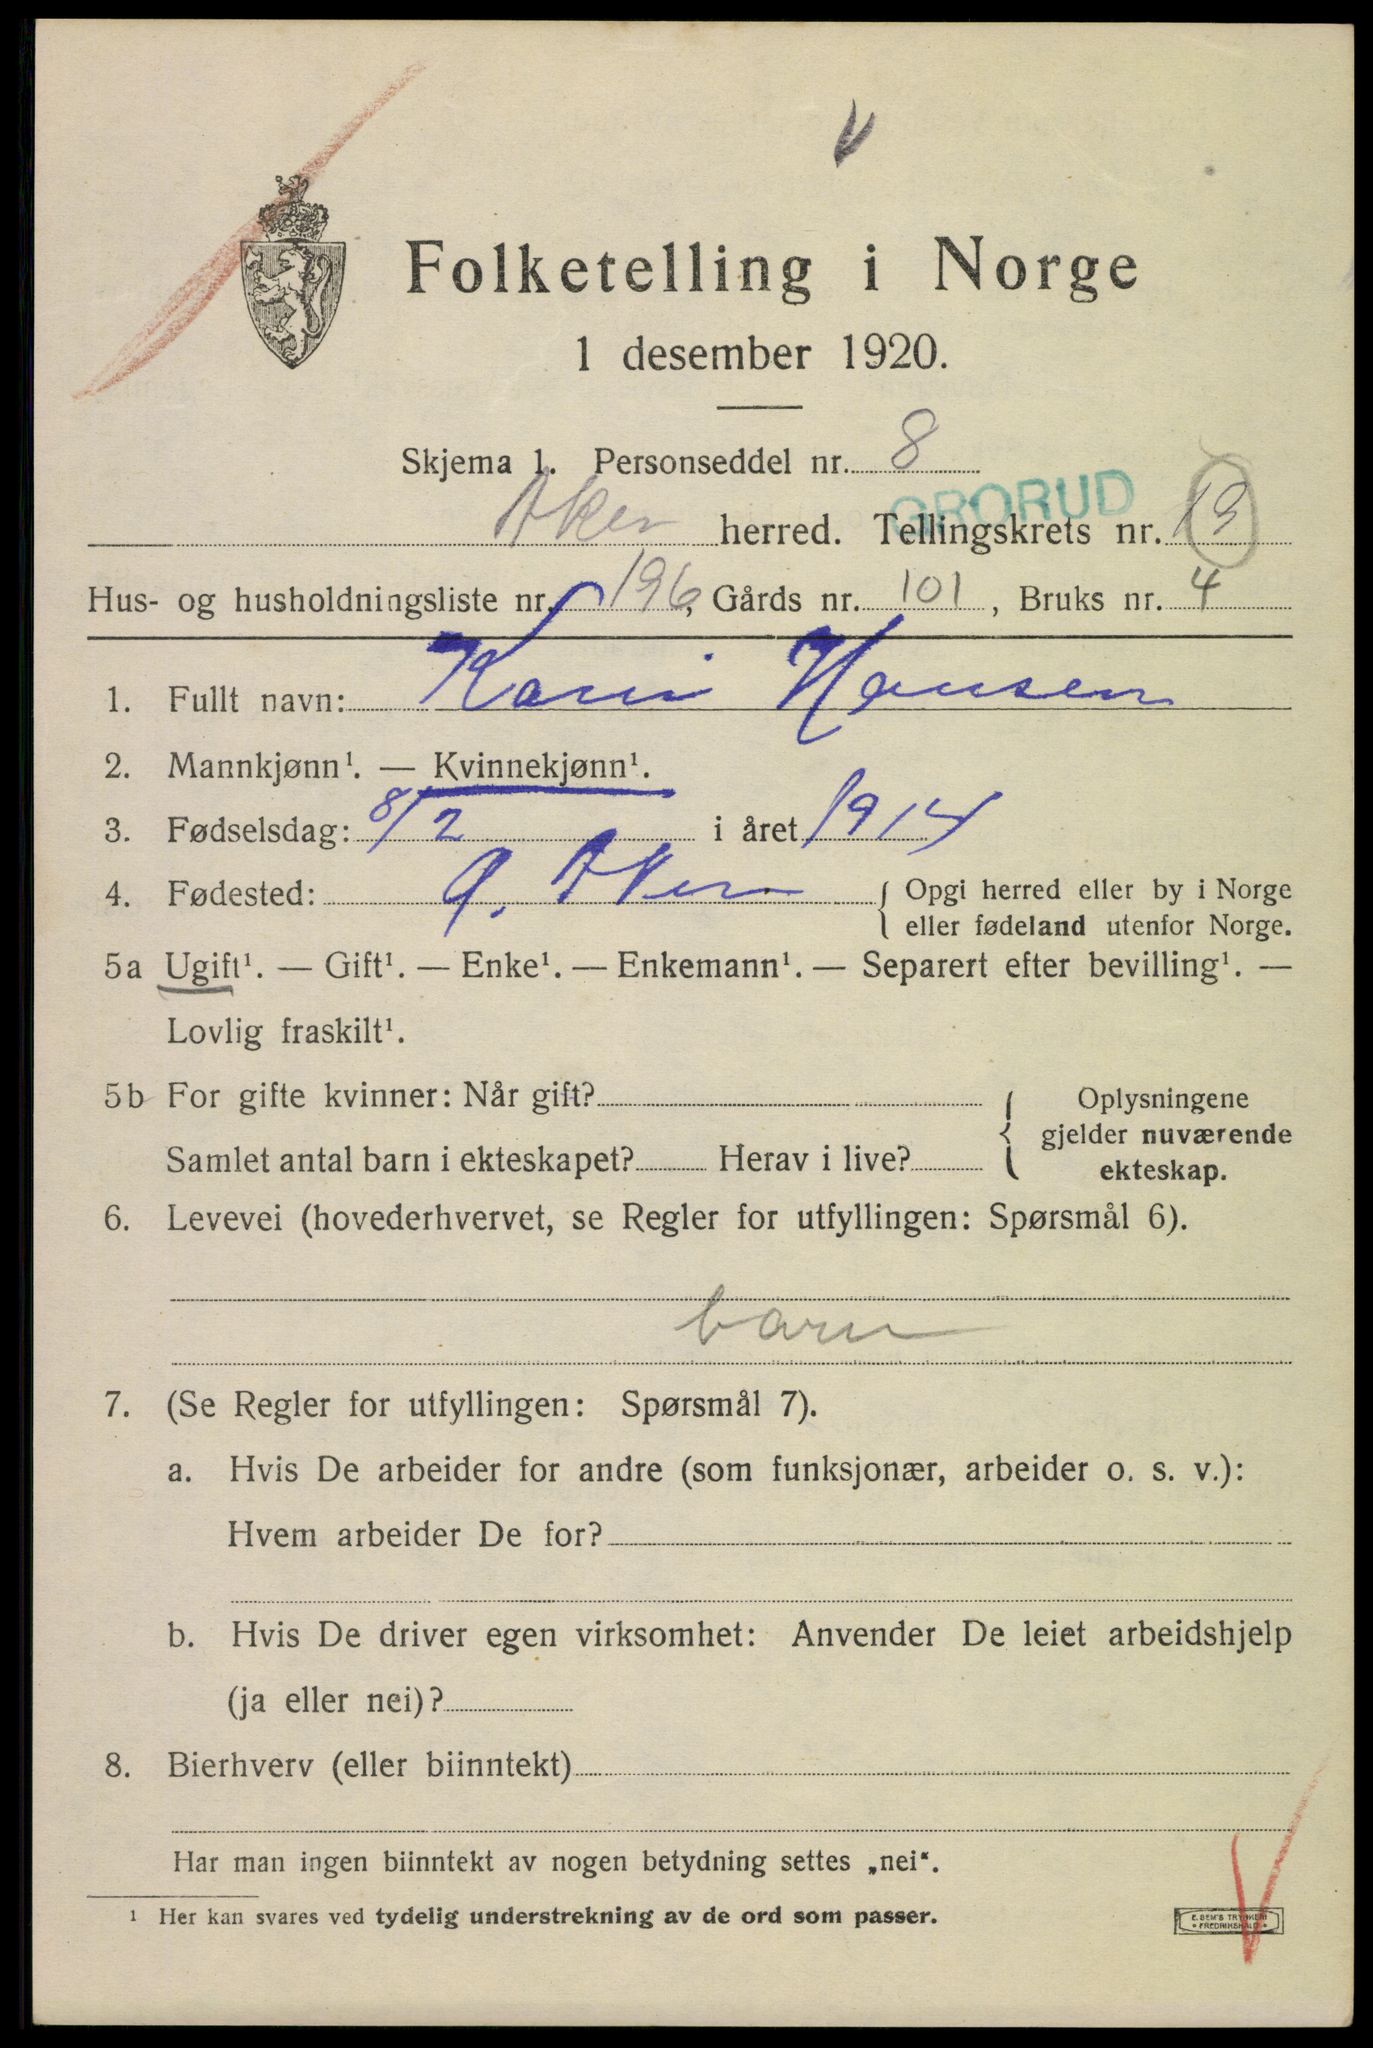 Folketelling i Norge
1 desember 1920.
Skjema 1. Personseddel nr. 8
GRORUD
Aker herred. Tellingskrets nr. 13
Hus- og husholdningsliste nr. 196, Gårds nr. 101, Bruks nr. 4
1. Fullt navn: Karin Hansen
2. Mannkjønn¹. — Kvinnekjønn¹.
3. Fødselsdag: 8/2 i året 1914
4. Fødested: Ø. Aker { Opgi herred eller by i Norge
eller fødeland utenfor Norge.
5a Ugift¹. — Gift¹. — Enke¹. — Enkemann¹. — Separert efter bevilling¹. —
Lovlig fraskilt¹.
5b For gifte kvinner: Når gift? { Oplysningene
gjelder nuværende
Samlet antal barn i ekteskapet? Herav i live?
ekteskap.
6. Levevei (hovederhvervet, se Regler for utfyllingen: Spørsmål 6).
barn
7. (Se Regler for utfyllingen: Spørsmål 7).
a. Hvis De arbeider for andre (som funksjonær, arbeider o. s. v.):
Hvem arbeider De for?
b. Hvis De driver egen virksomhet: Anvender De leiet arbeidshjelp
(ja eller nei)?
8. Bierhverv (eller biinntekt)
Har man ingen biinntekt av nogen betydning settes „nei“.
¹ Her kan svares ved tydelig understrekning av de ord som passer.
E. SEM'S TRYKKERI
• FREDRIKSHALD •